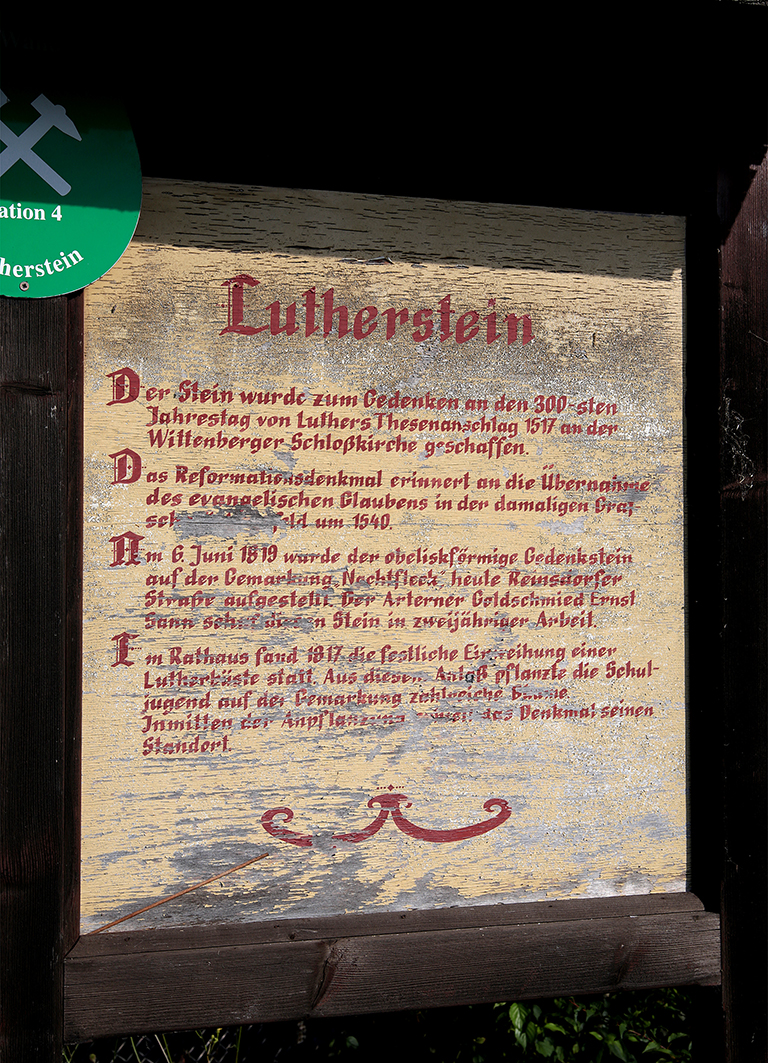 ation 4
herstein
Lutherstein
Der Stein wurde zum Gedenken an den 300-sten
Jahrestag von Luthers Thesenanschlag 1517 an der
Wittenberger Schloßkirche geschaffen.
Das Reformationsdenkmal erinnert an die Übernahme
des evangelischen Glaubens in der damaligen Graf
sch feld um 1540.
Am 6. Juni 1819 wurde der obeliskförmige Gedenkstein
auf der Gemarkung Nachtfleck, heute Reinsdorfer
Straße aufgestellt. Der Arterner Goldschmied Ernst
schuf diesen Stein in zweijähriger Arbeit.
Im Rathaus fand 1817 die festliche Einweihung einer
Lutherbüste statt. Aus diesem Anlaß pflanzte die Schul-
jugend auf der Gemarkung zahlreiche Bäume.
Inmitten der Anpflanzung das Denkmal seinen
Standort.